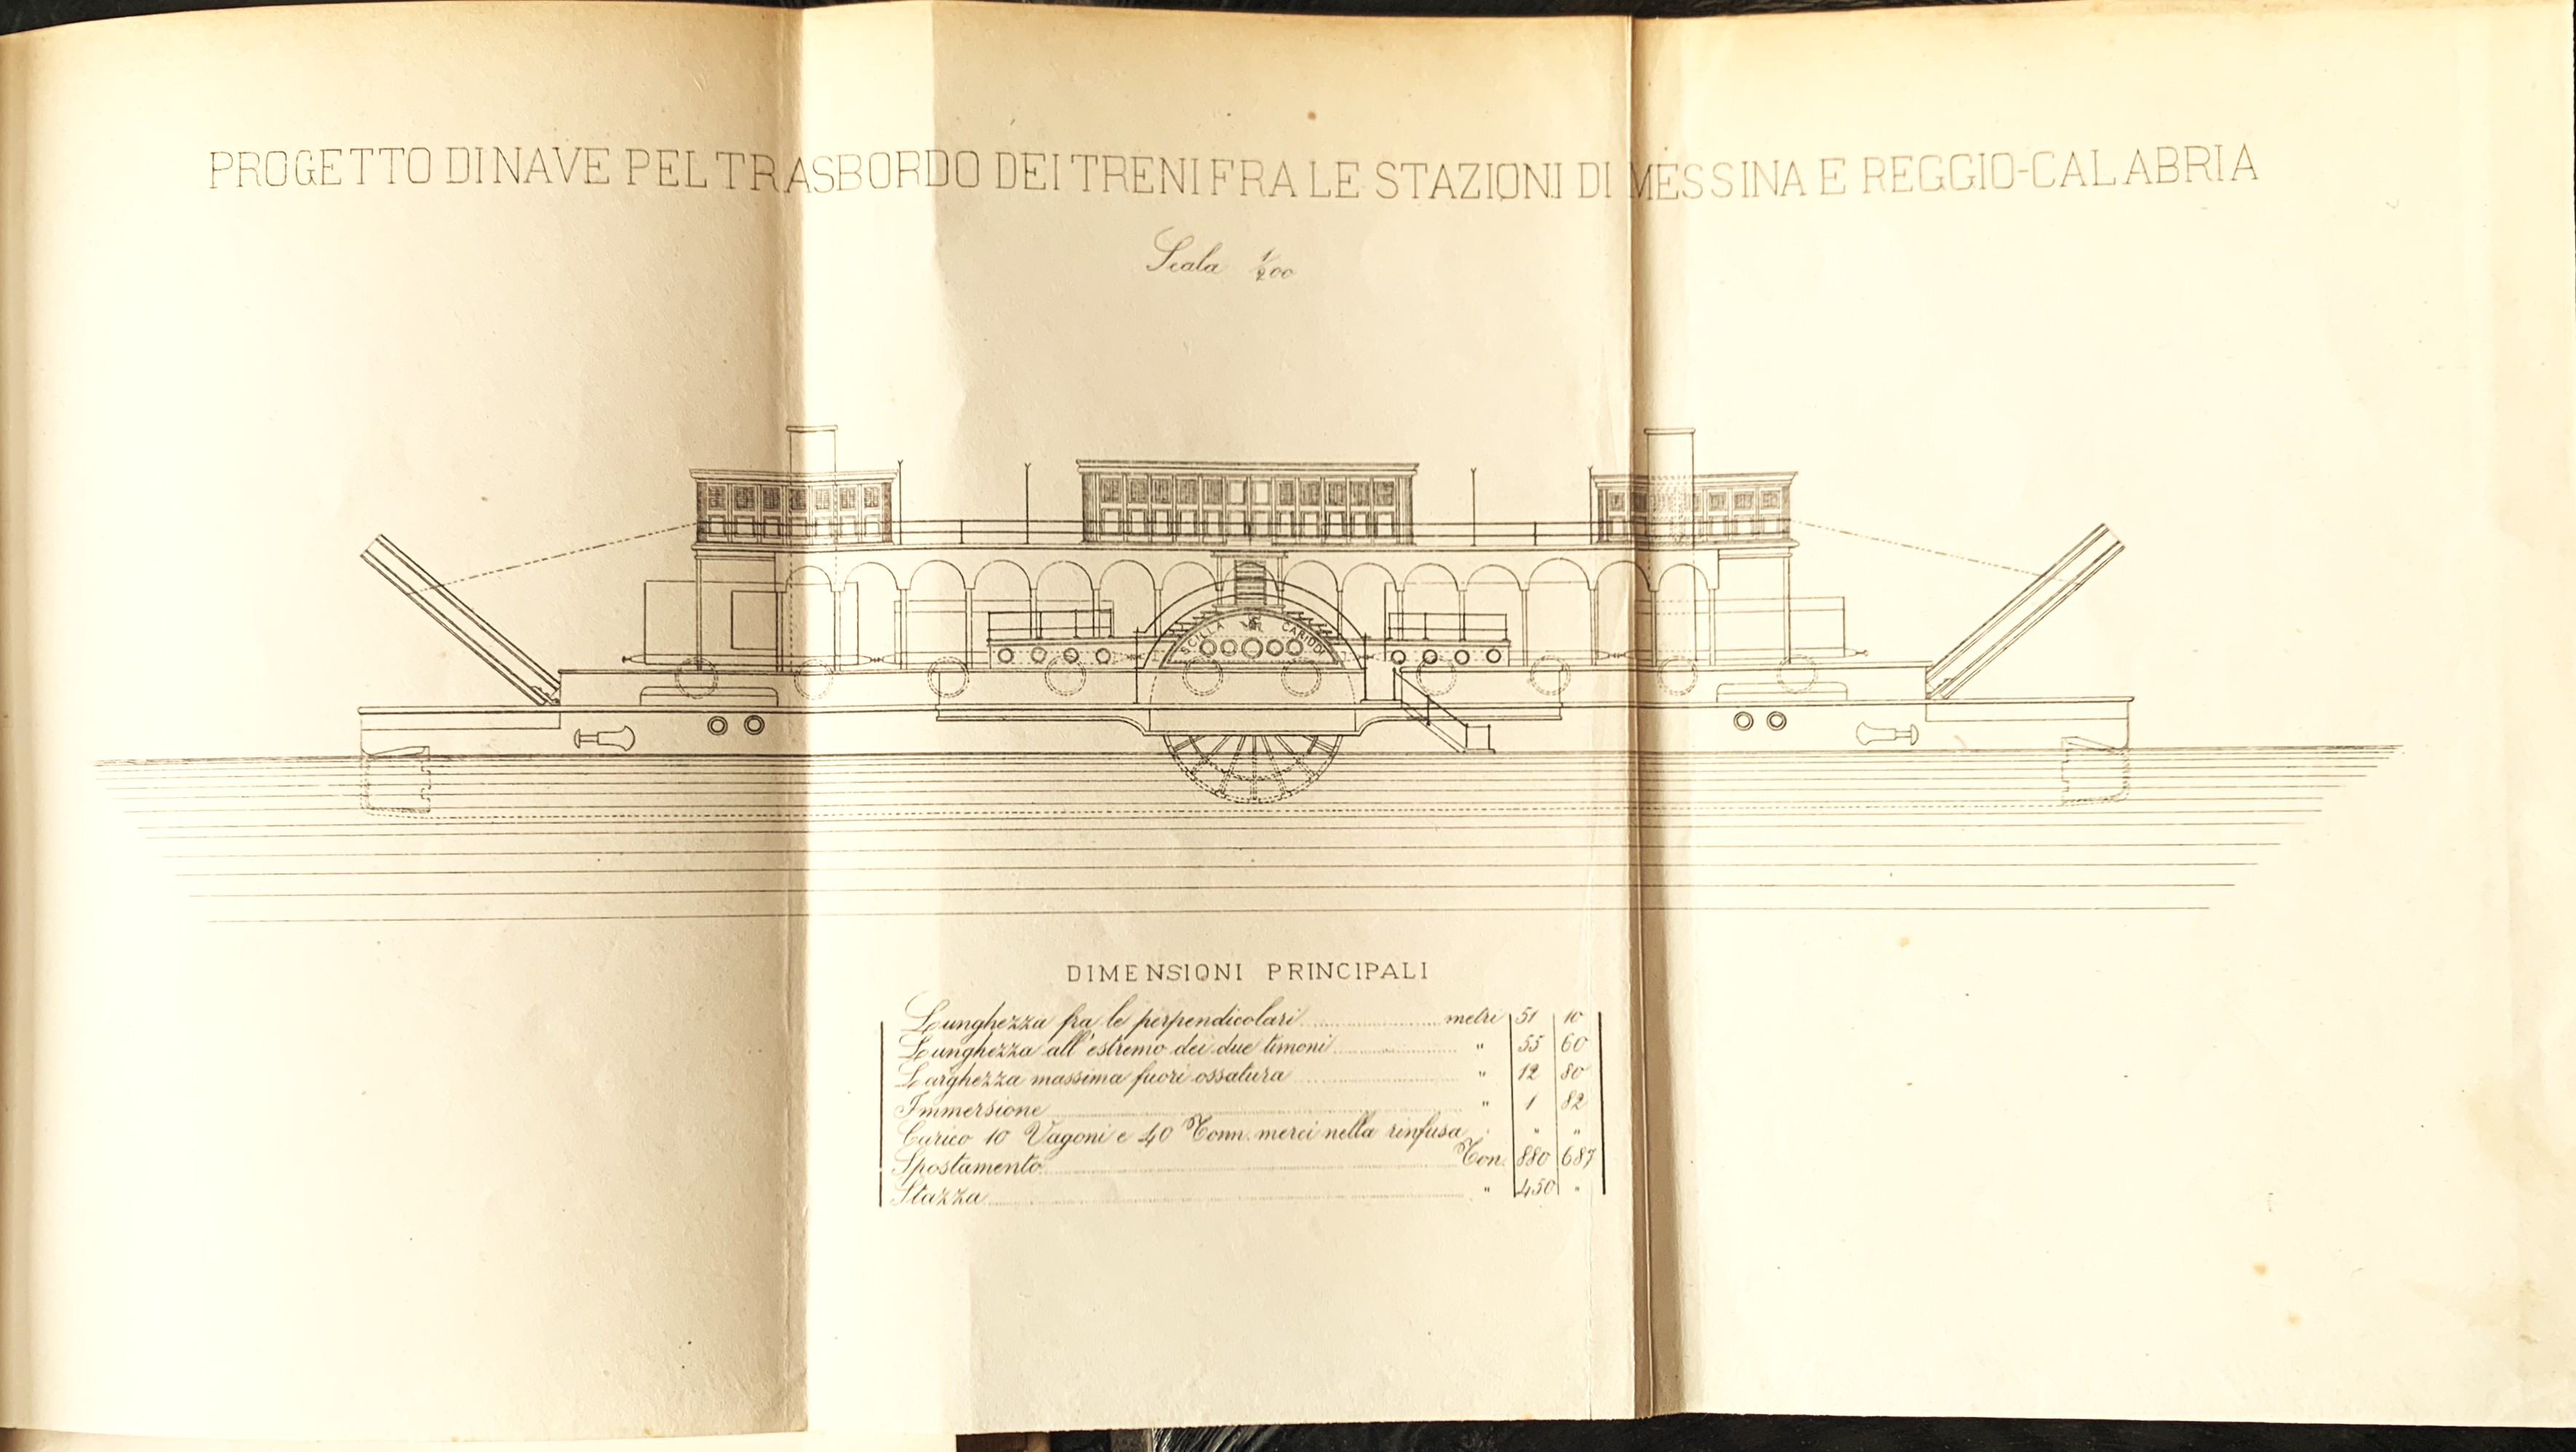 PROGETTO DI NAVE PEL TRASBORDO DEI TRENI FRA LE STAZIONI DI MESSINA E REGGIO-CALABRIA
Scala 1/200
SCILLA CARIDDI
DIMENSIONI PRINCIPALI
Lunghezza fra le perpendicolari metri 51 10
Lunghezza all'estremo dei due timoni " 55 60
Larghezza massima fuori ossatura " 12 80
Immersione " 1 82
Carico 10 Vagoni e 40 Tonn. merci nella rinfusa " " "
Spostamento Ton. 880 687
Stazza " 450 "